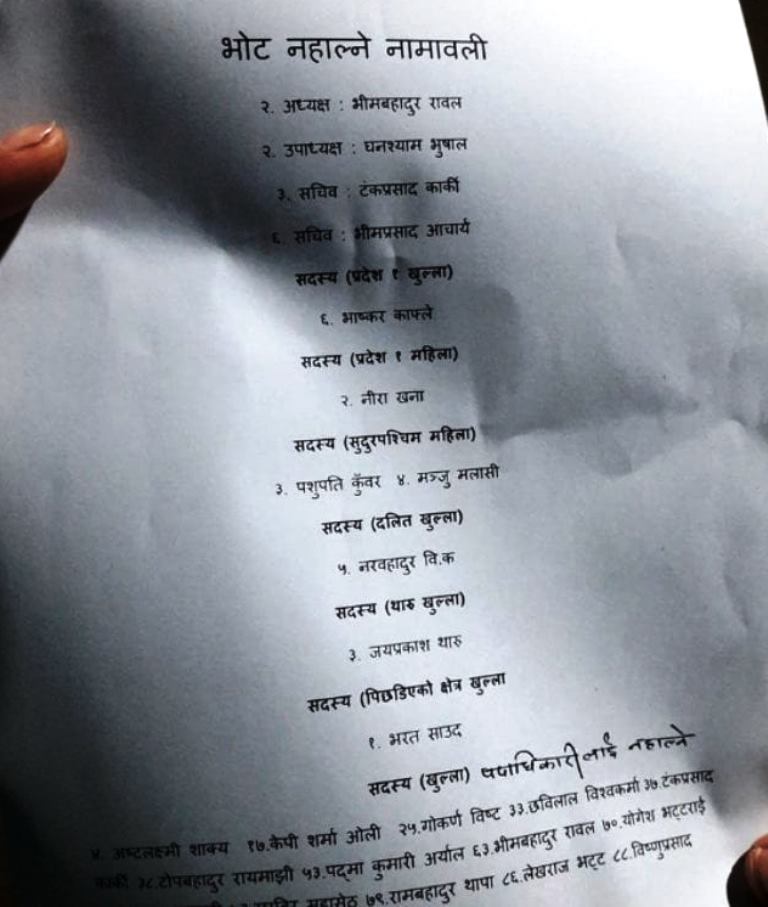 भोट नहाल्ने नामावली
२. अध्यक्ष : भीमबहादुर रावल
२. उपाध्यक्ष : घनश्याम भुषाल
३. सचिव : टंकप्रसाद कार्की
६. सचिव : भीमप्रसाद आचार्य
सदस्य (प्रदेश १ खुल्ला)
६. भाष्कर काफ्ले
सदस्य (प्रदेश १ महिला)
२. नीरा खना
सदस्य (सुदुरपश्चिम महिला)
३. पशुपति कुँवर ४. मञ्जु मलासी
सदस्य (दलित खुल्ला)
५. नरवहादुर वि.क
सदस्य (थारु खुल्ला)
३. जयप्रकाश थारु
सदस्य (पिछडिएको क्षेत्र खुल्ला
१. भरत साउद
सदस्य (खुल्ला) पदाधिकारीलाई नहाल्ने
४. अष्टलक्ष्मी शाक्य १७.केपी शर्मा ओली २५.गोकर्ण विष्ट ३३.छविलाल विश्वकर्मा ३७.टंकप्रसाद
कार्की ३८.टोपबहादुर रायमाझी ५३.पद्मा कुमारी अर्याल ६३.भीमबहादुर रावल ७०.योगेश भट्टराई
महासेठ ७९.रामबहादुर थापा ८६.लेखराज भट्ट ८८.विष्णुप्रसाद